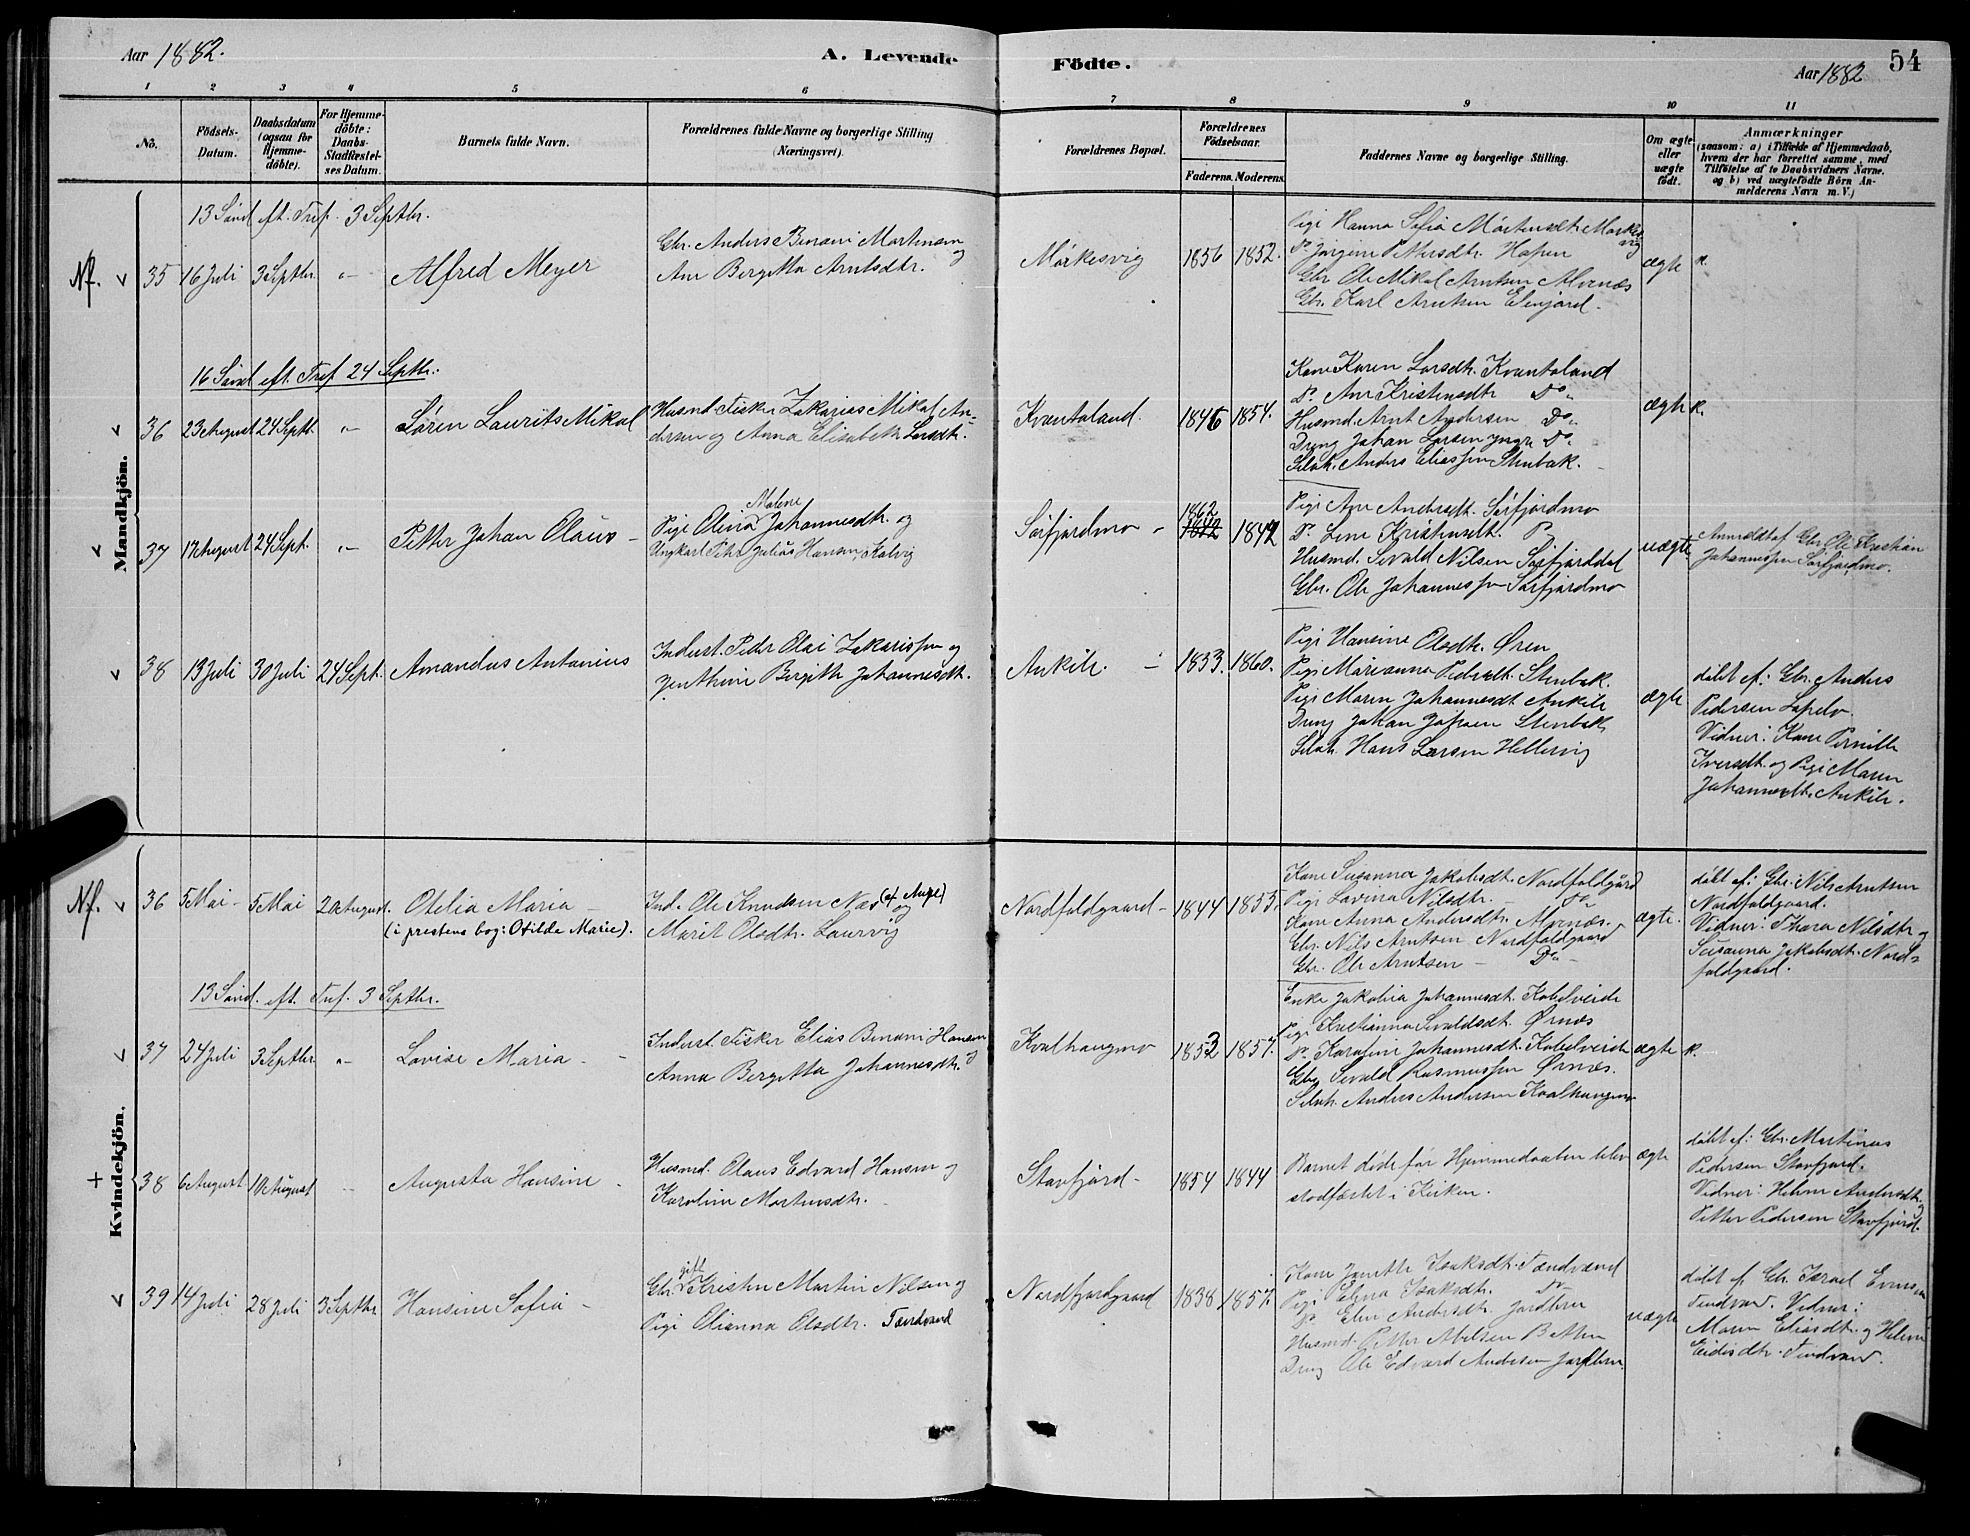 Aar 1882.
A. Levende
Födte.
Aar 1882
54
1 2 3 4 5 6 7 8 9 10 11
No.
Födsels-
Datum.
Daabsdatum
(ogsaa for
Hjemme-
döbte).
For Hjemme-
döbte:
Daabs-
Stadfæstel-
ses Datum.
Barnets fulde Navn.
Forældrenes fulde Navne og borgerlige Stilling
(Næringsvei).
Forældrenes Bopæl.
Forældrenes
Födselsaar.
Faderens. Moderens.
Faddernes Navne og borgerlige Stilling.
Om ægte
eller
uægte
født.
Anmærkninger
(saasom: a) i Tilfælde af Hjemmedaab,
hvem der har forrettet samme, med
Tilföielse af to Daabsvidners Navne.
og b) ved uægtefödte Börn An-
melderens Navn m. V.)
Mandkjön.
13 Sönd. eft. Tref. 3 Septbr.
Nf. v 35 16 Juli 3 Septbr. "
Alfred Meyer
Gbr. Anders Benoni Mortensen
og
Ane Bergitta Arntsdtr.
Mørkesvig
1856 1852.
Pige Hanna Sofia Mortensdt. Mørkes
vig
D. Jørgine Pettersdtr. Hopen
Gbr Ole Mikal Arntsen Alvenæs
Gbr. Karl Arntsen Elvfjord.
ægte
16 Sönd. eft. Tref. 24 Septbr.
v 36 23 August 24 Septb. "
Søren Laurits Mikal
Husmd. Fisker Zakarias Mikal An-
dersen og Anna Elisabeth Larsdtr.
Kvantoland.
1846 1854.
Kone Karen Larsdt. Kvantoland
D. Ane Kristensdtr Do.
Husmd. Arnt Andersen Do.
Dreng Johan Larsen yngre Do.
Selvh. Anders Eliassen Stenbak.
ægte
v 37 17 August 24 Sept. "
Petter Johan Olaus
Malene
Pige Olina Johannesdtr. og
Ungkarl Peter Julius Hansen Kalvig
Sørfjordmo
1862
1842 1842
Pige Ane Andersdt. Sørfjordmo
D. Lene Kristensdt. D.
Husmd. Sivald Nilsen Sørfjorddal
Gbr. Ole Johannessen Sørfjordmo
uægte
Anmeldt af Gbr. Ole Kristian
Johannessen Sørfjordmo.
v 38 13 Juli 30 Juli 24 Sept.
Amandus Antonius
Inderst. Peder Olai Zakariassen og
Jenthine Bergith Johannesdt.
Ankile.
1833. 1860.
Pige Hansine Olsdtr. Øren
Pige Marianna Pedersdt. Stenbak.
Pige Maren Johannesdt Ankile
Dreng Johan Johnsen Stenbak
Selvh. Hans Larsen Hellervig
ægte
döbt af: Gbr. Anders
Pedersen
Vidner: Kone Pernille
Iversdt. og Pige Maren
Johannesdt. Ankile.
Kvindekjön.
Nf. v 36 5 Mai 5 Mai 20 August.
Otelia Maria
(i prestens bog: Otilde Marie).
Ind. Ole Knudsen Næs (af Aure)
og
Marit Olsdtr. Laurvig
Nordfoldgaard
1844 1853.
Kone Susanna Jakobsdt. Nordfoldgård
Pige Lovina Nilsdtr. Do
Kone Anna Andersdtr. Alvenæs.
Gbr. Nils Arntsen Nordfoldgaard
Gbr. Ole Arntsen Do
ægte.
döbt af: Gbr. Nils Arntsen
Nordfoldgaard.
Vidner: Thora Nilsdtr og
Susanna Jakobsdt. Nord-
foldgaard.
13 Sönd. eft. Tref. 3 Septbr.
v 37 24 Juli 3 Septbr. "
Lovise Maria
Inderst. Fisker Elias Benoni Hansen
og
Anna Bergitta Johannesdtr.
Kvalhaugmo
1853 1857.
Enke Jakobia Johannesdt. Kobelveide
Pige Kristianna Sivaldsdt. Ørnæs
D. Karoline Johannesdt. Kobelveide
Gbr. Sivald Rasmussen Ørnæs.
Selvh. Anders Andersen Kvalhaugmo
ægte
+ 38 6 August 10 August
Augusta Hansine
Husmd. Olaus Edvard Hansen og
Karoline Mortensdtr.
Stavfjord
1854 1844
Barnet döde før Hjemmedaaben blev
stadfæstet i Kirken.
ægte
döbt af: Gbr. Martinus
Pedersen Stavfjord.
Vidner: Helene Andersdt.
og
Petter Pedersen Stavfjord.
v 39 14 Juli 28 Juli 3 Septbr.
Hansine Sofia
gift
Gbr. Kristen Martin Nilsen og
Pige Olianna Olsdtr. Tændvand
Nordfjordgaard
1838 1857.
Kone Janette Isaksdt. Tændvand
Pige Elena Isaksdt. Do
D. Elen Andersdt.
Husmd. Petter Abelsen Botten
Dreng Ole Edvard Andersen
uægte
döbt af Gbr. Israel Evensen
Tendvand. Vidner:
Maren Eliasdt. og Helene
Tendvand.